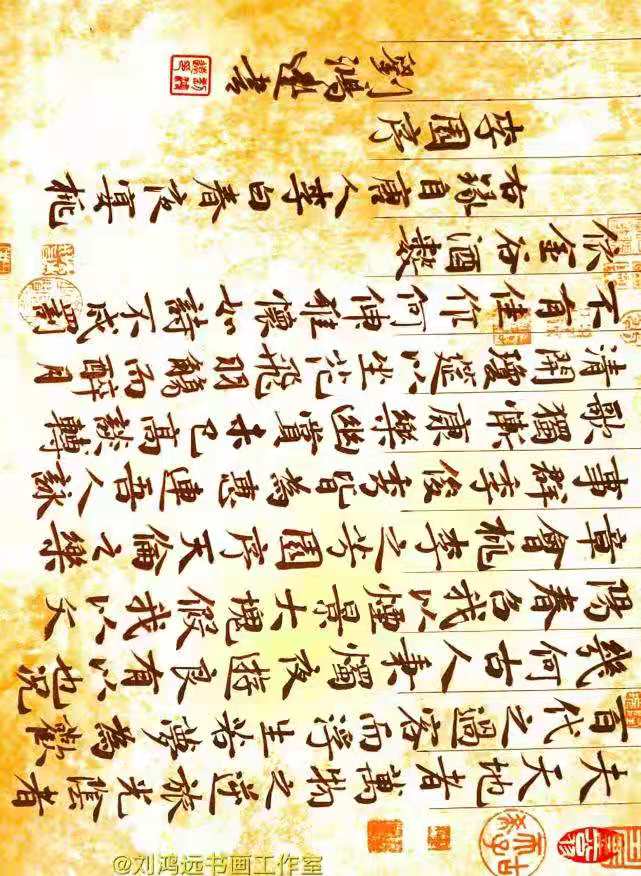 夫天地者萬物之逆旅光陰者
百代之過客而浮生若夢為歡
幾何古人秉燭夜遊良有以也況
陽春召我以煙景大塊假我以文
章會桃李之芳園序天倫之樂
事群季俊秀皆為惠連吾人詠
歌獨慚康樂幽賞未已高談轉
清開瓊筵以坐花飛羽觴而醉月
不有佳作何伸雅懷如詩不成罰
依金谷酒數
右録自唐人李白春夜宴桃
李園序
劉鴻遠書
@刘鸿远书画工作室